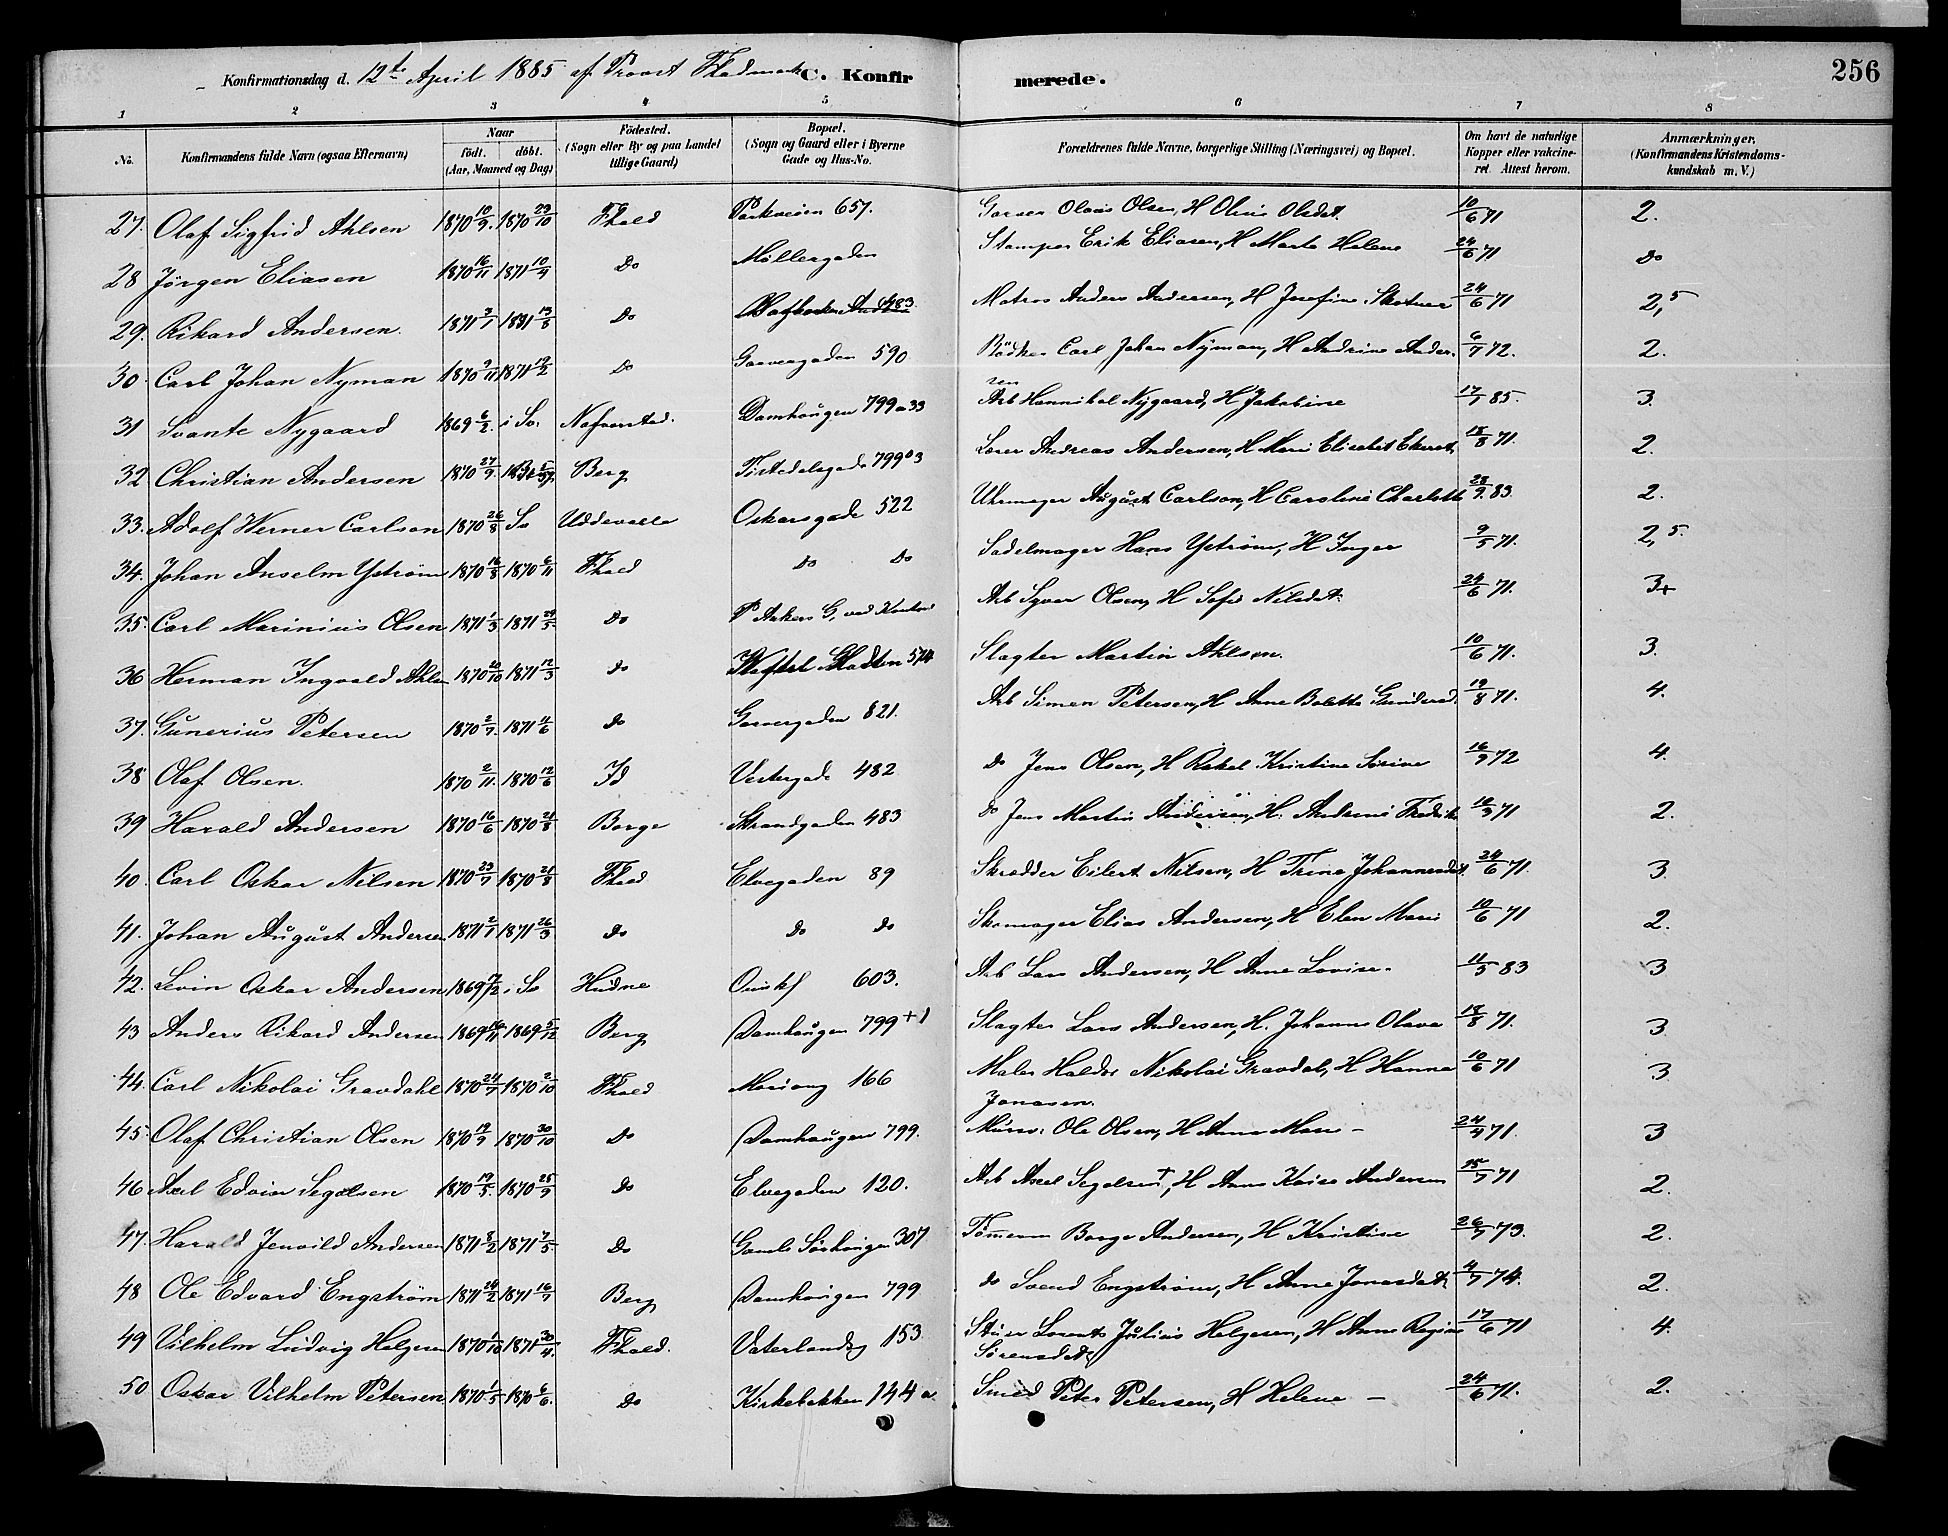 256
Konfirmationsdag d. 12te April 1885 af Provst C. Konfirmerede.
1 2 3 4 5 6 7 8
No. Konfirmandens fulde Navn (ogsaa Efternavn) Naar födt. döbt. (Aar, Maaned og Dag) Födested. (Sogn eller By og paa Landet tillige Gaard) Bopæl. (Sogn og Gaard eller i Byerne Gade og Hus-No. Forældrenes fulde Navne, borgerlige Stilling (Næringsvei) og Bopæl. Om havt de naturlige Kopper eller vakcineret. Attest herom. Anmærkninger, (Konfirmandens Kristendomskundskab m. V.)
27. Olaf Sigfrid Ahlsen 1870 10/9. 1870 23/10 Fhald Parkveien 657. Garver Olaus Olsen, H Olsdat. 10/6 71 2.
28 Jörgen Eliasen 1870 16/11 1871 10/4 Do Möllergaden Stamper Erik Eliasen, H Marte Helene 24/6 71 Do
29. Rikard Andersen. 1871 2/1 1871 13/8 Do 483 Matros Anders Andersen, H Josefine 24/6 71 2,5
30. Carl Johan Nyman 1870 9/11 1871 12/2 Do Garvergaden 590 Bödker Carl Johan Nyman, H Andrine Andersen 6/7 72. 2.
31 Svante Nygaard 1869 6/2. i Sv. Nafverstad. Damhaugen 799a33 Arb Hannibal Nygaard, H Jakobine 17/1 85. 3.
32 Christian Andersen 1870 27/9. Berg Tistedalsgade 799a3 Andreas Andersen, H Mari Elisabet 18/8 71. 2.
33. Adolf Werner Carlson 1870 26/8 Sv Uddevalla Oskarsgade 522 Uhrmager August Carlson, H Caroline Charlotte 28/9. 83. 2.
34. Johan Anselm Yström 1870 16/8 1870 6/11 Fhald Do Do Sadelmager Hans Yström, H Inger 9/5 71. 2,5.
35. Carl Marinius Olsen 1871 1/3 1871 29/5. Do P Ankers G, ved Arb Syver Olsen, H Sofie Nilsdat. 24/6 71. 3+
36 Herman Ingvald Ahlsen 1870 20/10 1871 12/3 Do 574 Slagter Martin Ahlsen. 10/6 71. 3.
37. Gunerius Petersen 1870 2/7. 1871 11/6 Do Garvergaden 821. Arb Simen Petersen, H Anne Bolette 19/8 71. 4.
38 Olaf Olsen. 1870 2/11. 1870 12/6 Id Vestergade 482 Do Jens Olsen, H Rakel Kristine Sörine 16/9 72 4.
39 Harald Andersen 1870 16/6 1870 21/8 Borge Strandgaden 483 Do Jens Martin Andersen, H. Andrine Fredrik 10/3 71 2.
40. Carl Oskar Nilsen 1870 23/7 1870 21/8 Fhald Elvegaden 89 Skrædder Eilert Nilsen, H Trine Johannesdat. 24/6 71. 3.
41. Johan August Andersen 1871 2/1 1871 26/3 Do Do Do Skomager Elias Andersen, H Elen Marie 10/6 71 2.
42. Levin Oskar Andersen 1869 7/2 i Sv Hudne 603. Arb Lars Andersen, H Anne Lovise. 11/5 83 3
43 Anders Rikard Andersen 1869 16/11 1869 5/12 Berg Damhaugen 799+1 Slagter Lars Andersen, H. Johanne Olava 18/8 71. 3
44. Carl Nikolai Gravdahl 1870 24/7 1870 2/10 Fhald 166 Maler Haldor Nikolai Gravdal, H Hanna Jonasen. 10/6 71 3
45. Olaf Christian Olsen 1870 19/9 1870 30/10 Do Damhaugen 799. Murer. Ole Olsen, H Anne Marie – 24/4 71. 3
46 Axel Edvin Segelsen 1870 19/5. 1870 25/9 Do Elvegaden 120. Arb Axel Segelsen +, H Anne Kaisa Andersen 15/7 71 2.
47. Harald Jenvild Andersen 1871 8/2 1871 7/5 Do Gamle 307 Tömerm Borge Andersen, H Kristine 26/7 73. 2.
48 Ole Edvard Engström 1871 24/2 1871 16/7 Berg Damhaugen 799 Do Svend Engström, H Anne Jonasdat. 4/7 74. 2.
49 Vilhelm Ludvig Helgesen 1870 1/10 1871 30/4. Fhald. Vaterlandsg 153 Stuer Lorents Julius Helgesen, H Anne Regine Sörensdat. 17/6 71 4.
50 Oskar Vilhelm Petersen 1870 1/5 1870 6/6. Do Kirkebakken 144a. Smed Peter Petersen, H Helene – 24/6 71. 2.